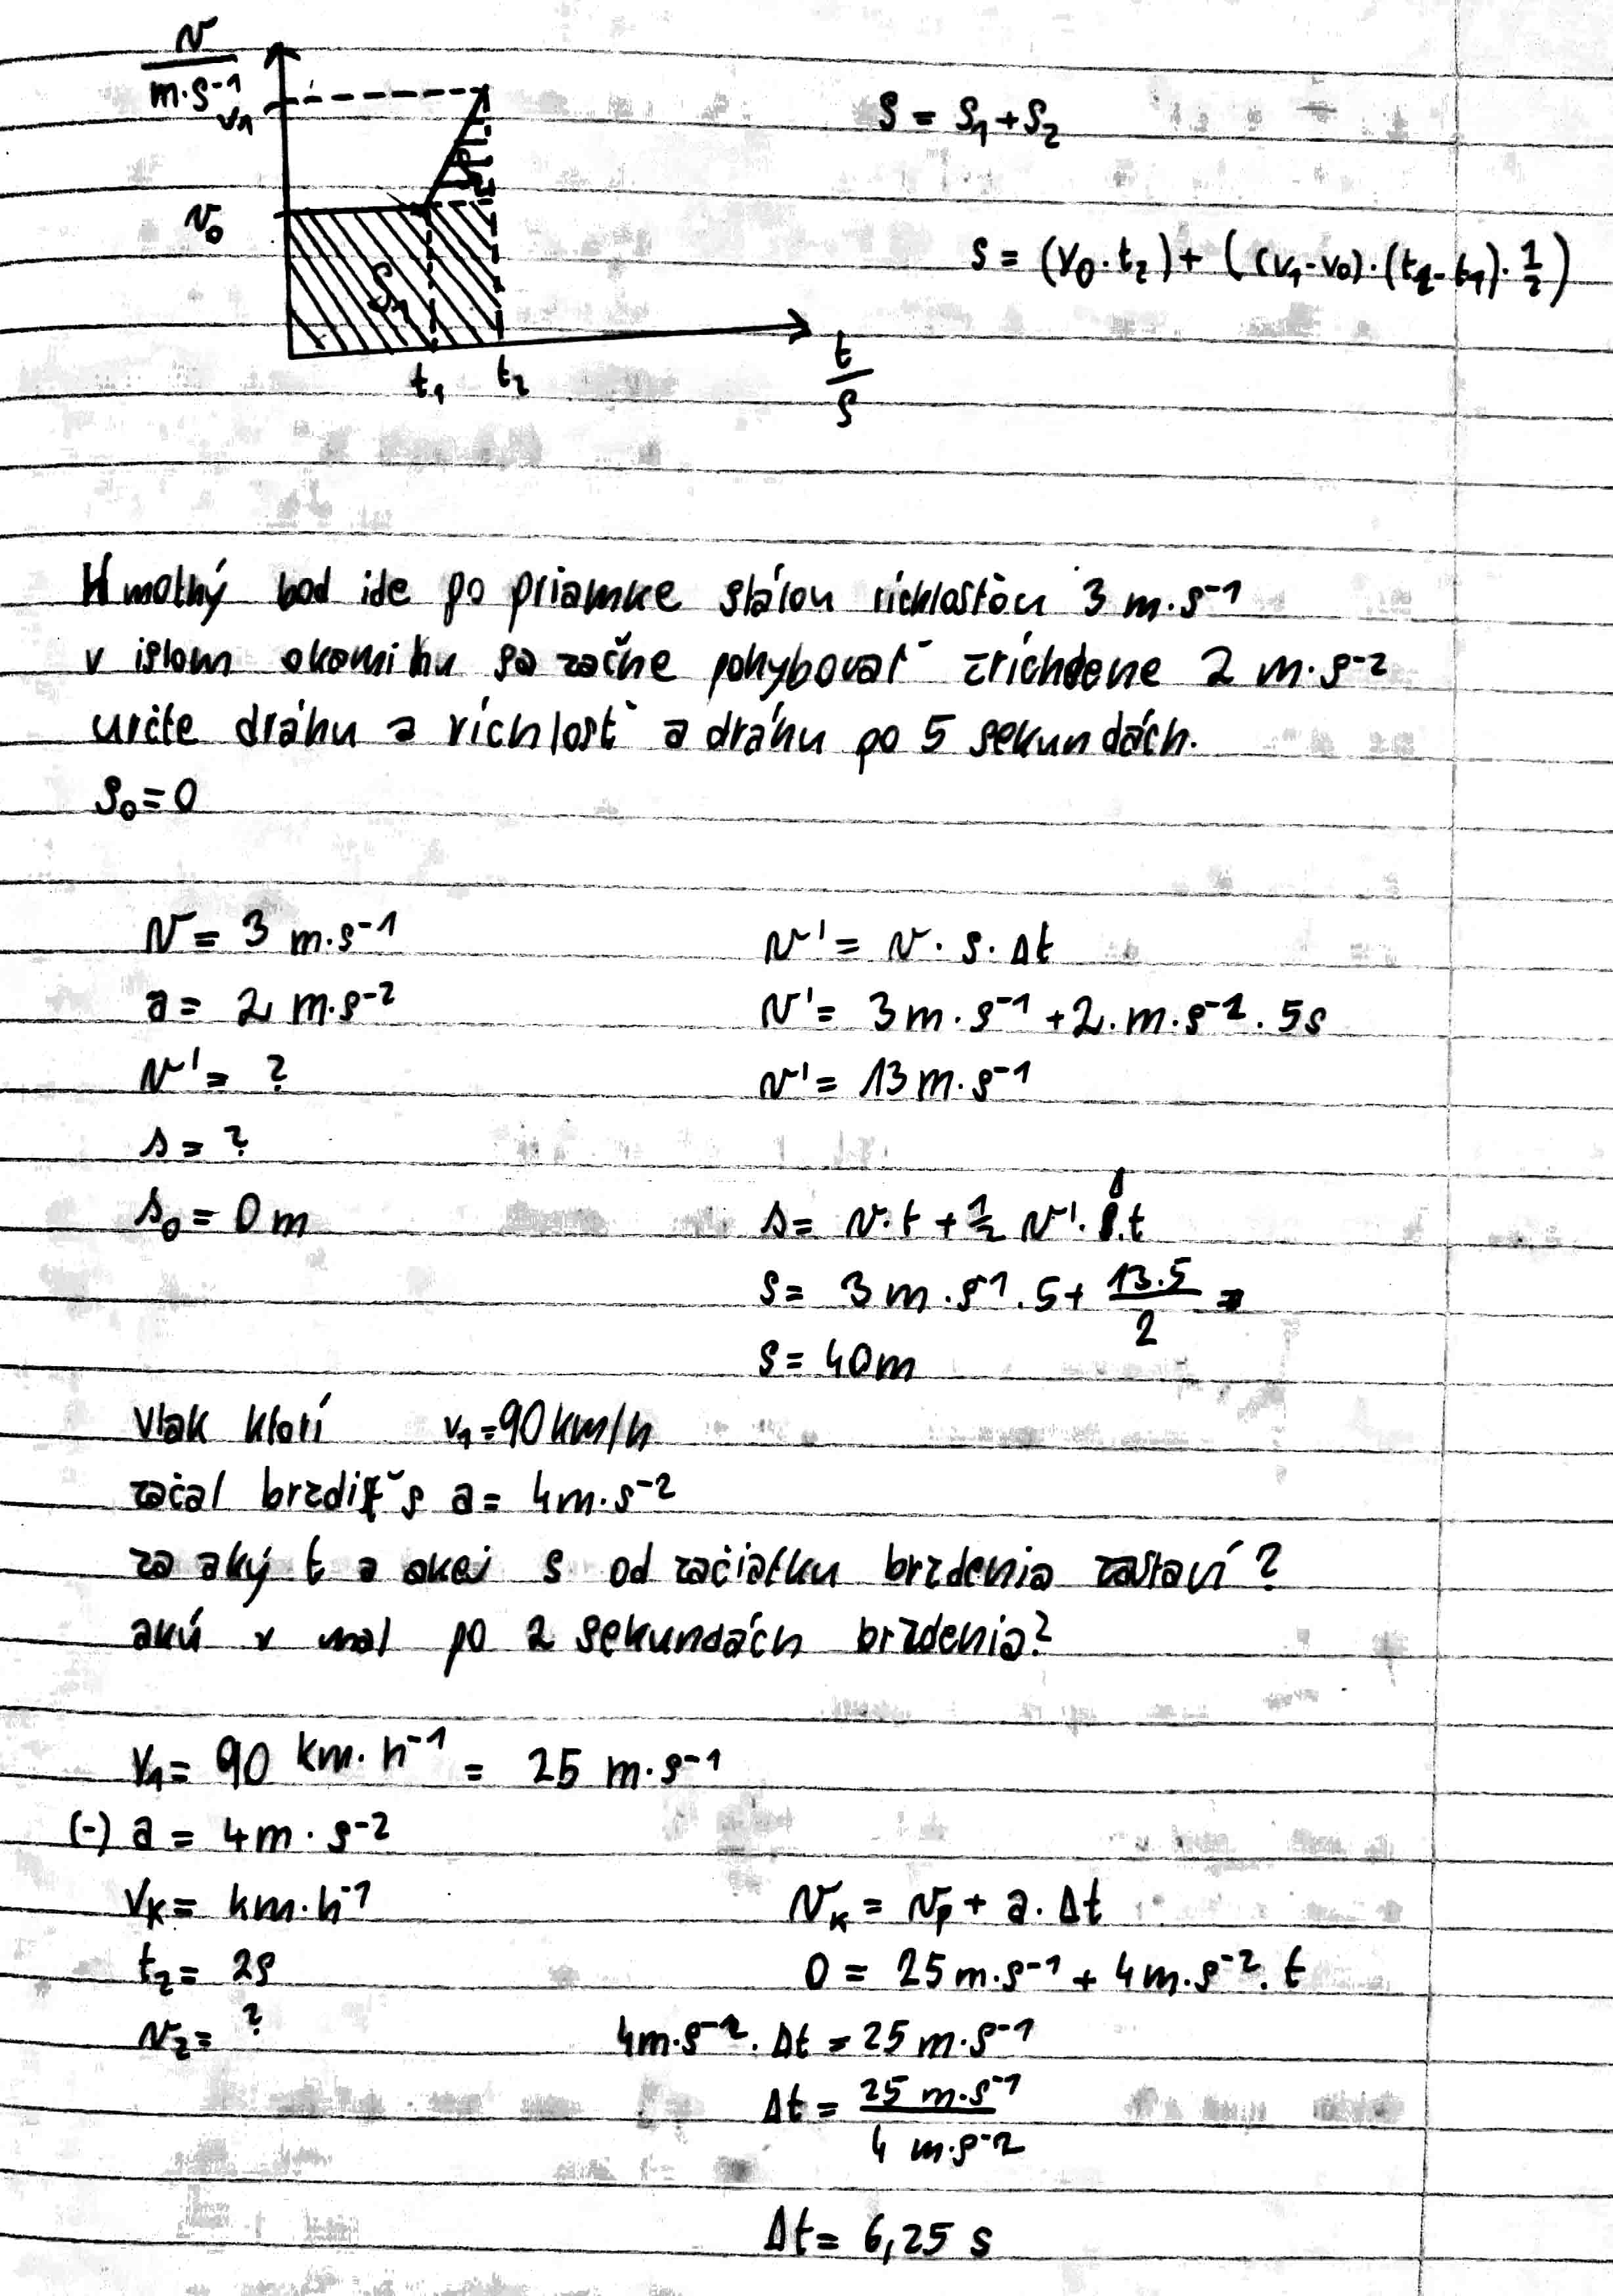 v
m·s⁻¹
v₁
s = s₁+s₂
s₂
v₀
s = (v₀·t₂)+((v₁-v₀)·(t₂-t₁)·1/2)
s₁
t₁ t₂
t
s
Hmotný bod ide po priamke stálou ríchlosťou 3 m·s⁻¹
v istom okomihu sa začne pohybovať zríchdene 2 m·s⁻²
určte dráhu a ríchlosť a dráhu po 5 sekundách.
s₀=0
v = 3 m·s⁻¹ v' = v · s · Δt
a = 2 m·s⁻² v' = 3 m·s⁻¹ +2·m·s⁻² · 5s
v' = ? v' = 13 m·s⁻¹
s = ?
s₀ = 0 m s = v·t + 1/2 v'· .t
s = 3 m·s⁻¹ · 5 + 13.5/2 =
s = 40m
Vlak ktorí v₁=90km/h
začal brzdiť s a = 4m·s⁻²
za aký t a akej s od začiatku brzdenia zastaví?
akú v mal po 2 sekundách brzdenia?
v₁ = 90 km·h⁻¹ = 25 m·s⁻¹
(-) a = 4m·s⁻²
vₖ = km·h⁻¹ vₖ = vₚ + a·Δt
t₂ = 2s 0 = 25m·s⁻¹ + 4m·s⁻²·t
v₂ = ? 4m·s⁻²·Δt = 25 m·s⁻¹
Δt = 25 m·s⁻¹/4 m·s⁻²
Δt = 6,25 s